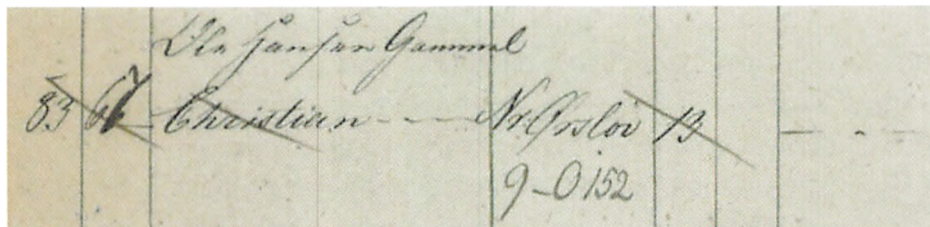 Ole Hansen Gammel
83 67 Christian — — Nr Ørslöv 13 — - —
9-0152